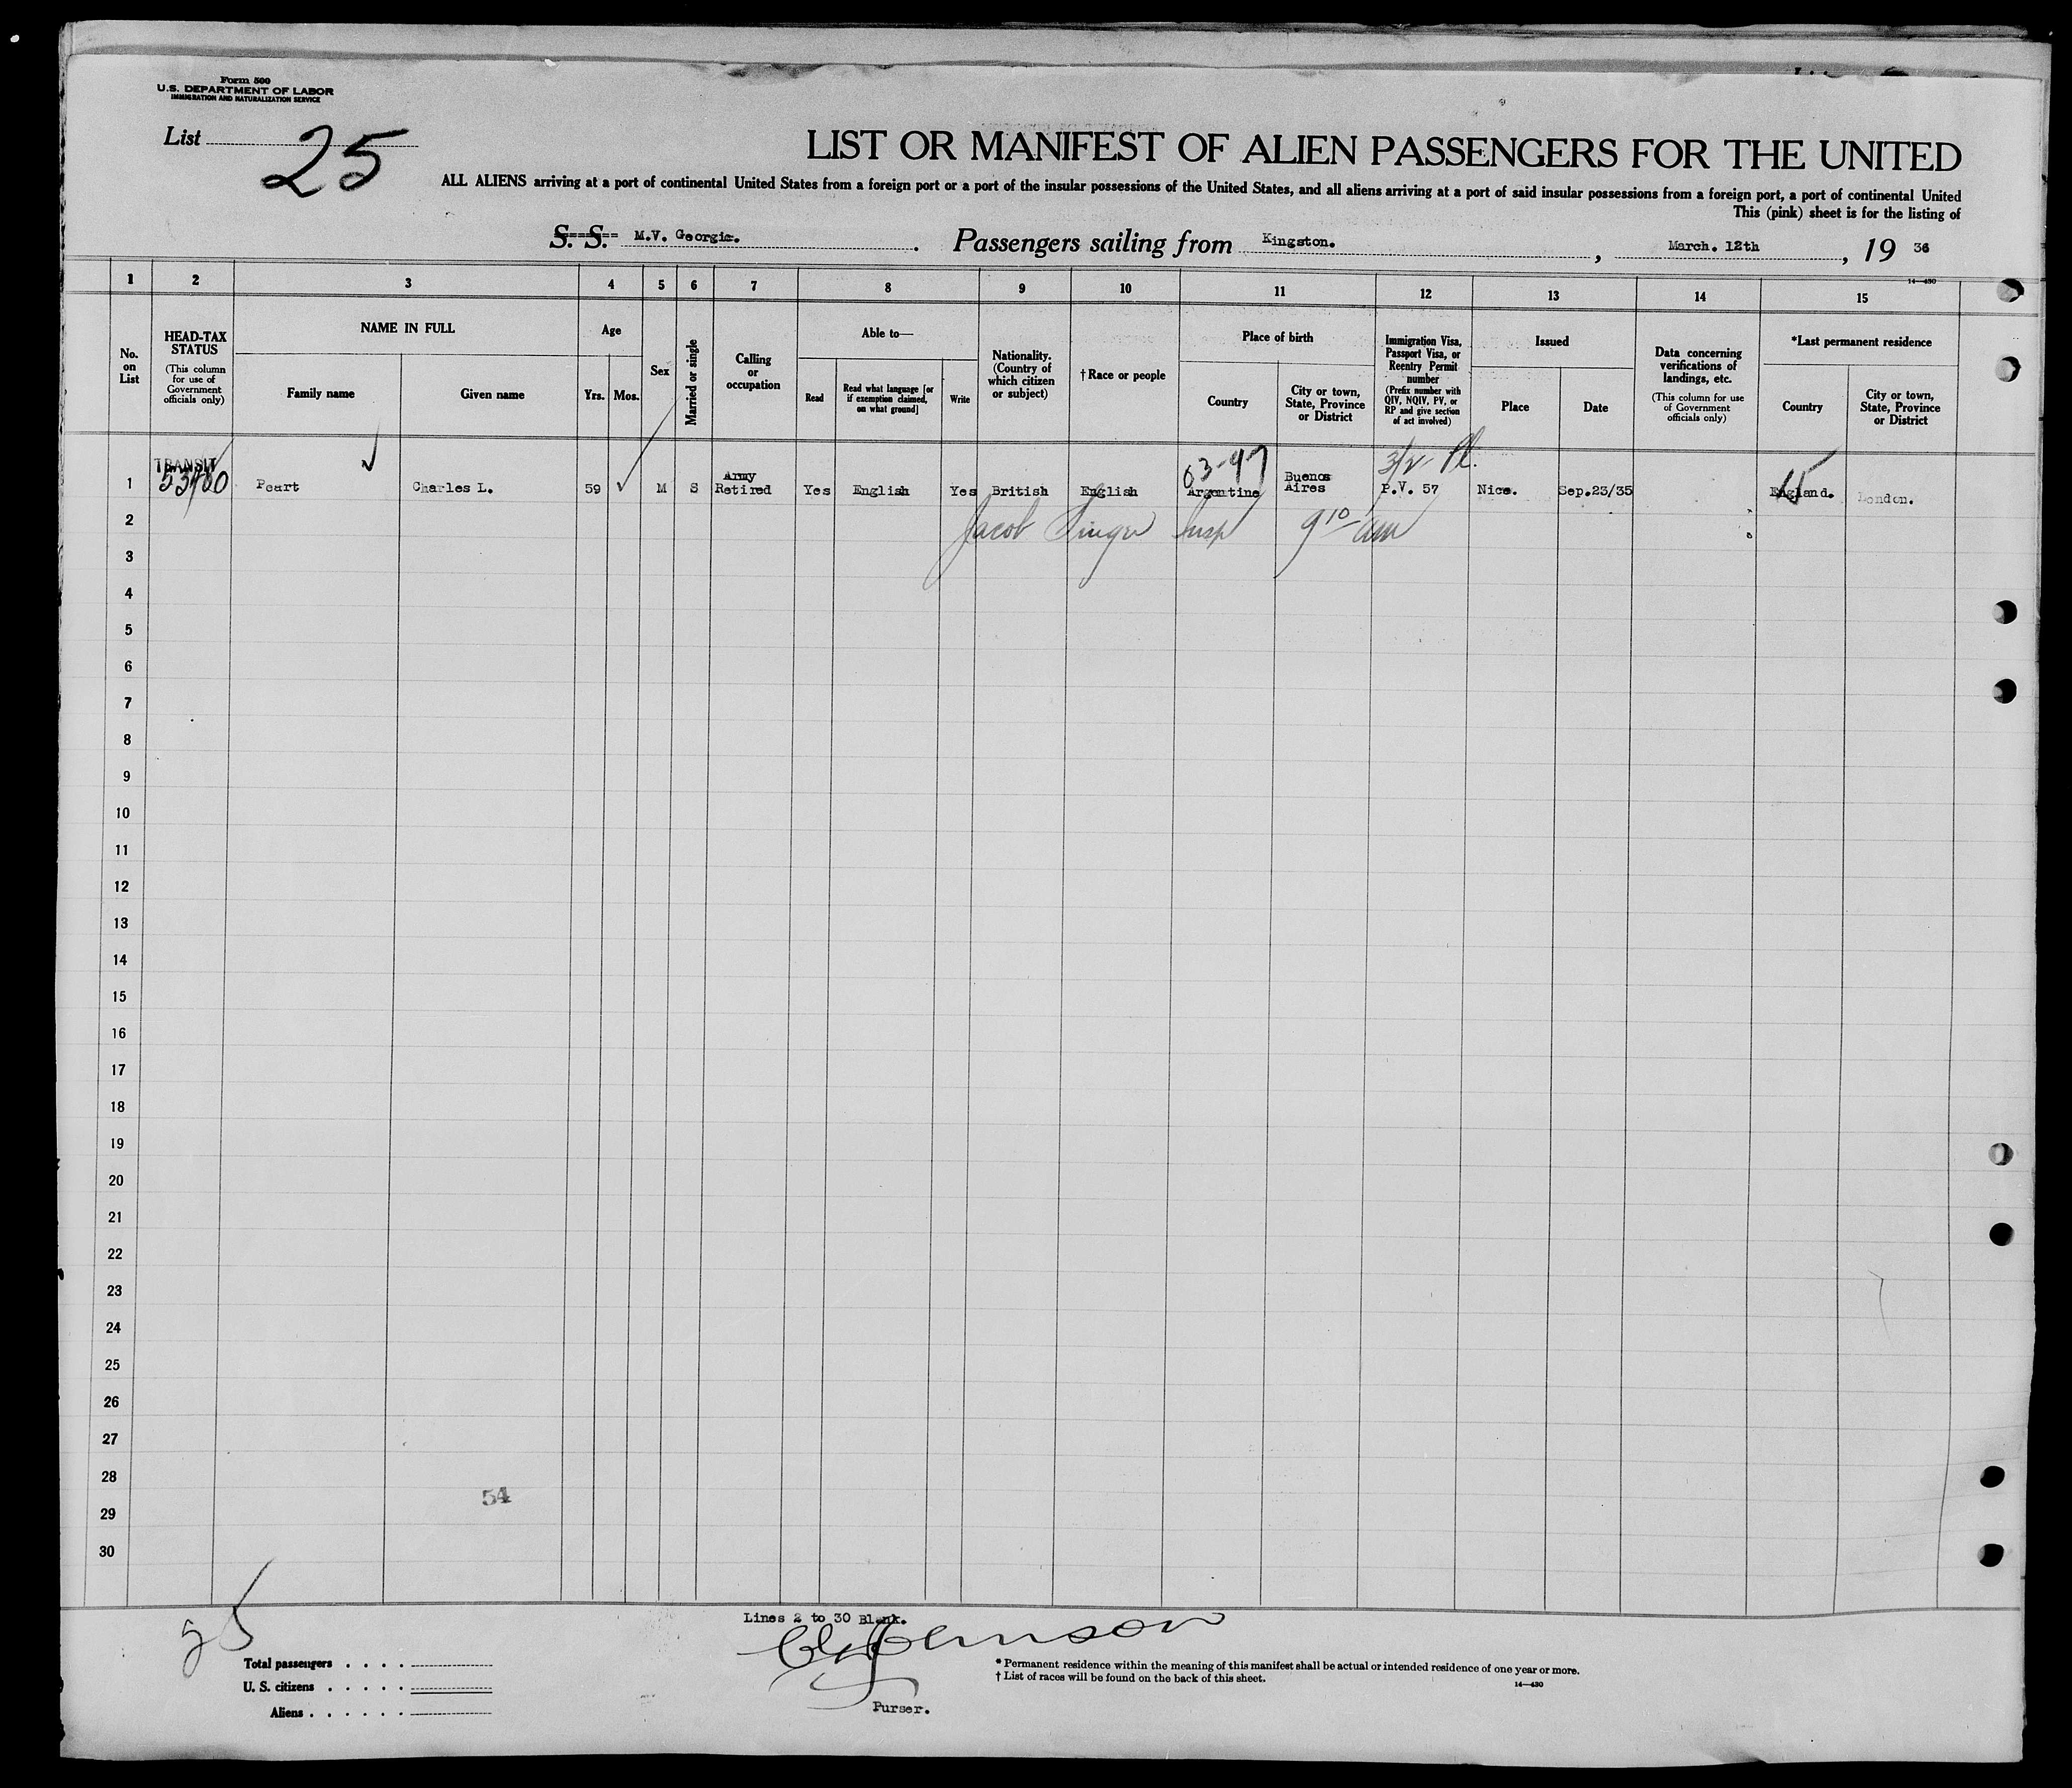 Form 500
U.S. DEPARTMENT OF LABOR
IMMIGRATION AND NATURALIZATION SERVICE
List 25
LIST OR MANIFEST OF ALIEN PASSENGERS FOR THE UNITED
ALL ALIENS arriving at a port of continental United States from a foreign port or a port of the insular possessions of the United States, and all aliens arriving at a port of said insular possessions from a foreign port, a port of continental United
This (pink) sheet is for the listing of
S. S. M.V. Georgic. Passengers sailing from Kingston. , March. 12th , 19 36
14—430
1 2 3 4 5 6 7 8 9 10 11 12 13 14 15
No. on List
HEAD-TAX STATUS
(This column for use of Government officials only)
NAME IN FULL
Family name Given name
Age
Yrs. Mos.
Sex
Married or single
Calling or occupation
Able to—
Read
Read what language [or if exemption claimed, on what ground]
Write
Nationality. (Country of which citizen or subject)
†Race or people
Place of birth
Country
City or town, State, Province or District
Immigration Visa, Passport Visa, or Reentry Permit number
(Prefix number with QIV, NQIV, PV, or RP and give section of act involved)
Issued
Place Date
Data concerning verifications of landings, etc.
(This column for use of Government officials only)
*Last permanent residence
Country
City or town, State, Province or District
TRANSIT 03-47
1 Peart Charles L. 59 M S Army Retired Yes English Yes British English Argentine Buenos Aires P.V. 57 Nice. Sep.23/35 England. London.
2 Jacob Singer Insp 9 10 am
3
4
5
6
7
8
9
10
11
12
13
14
15
16
17
18
19
20
21
22
23
24
25
26
27
28
54
29
30
25
Lines 2 to 30 Blank.
Total passengers
U. S. citizens
Aliens
Purser.
* Permanent residence within the meaning of this manifest shall be actual or intended residence of one year or more.
† List of races will be found on the back of this sheet.
14—430